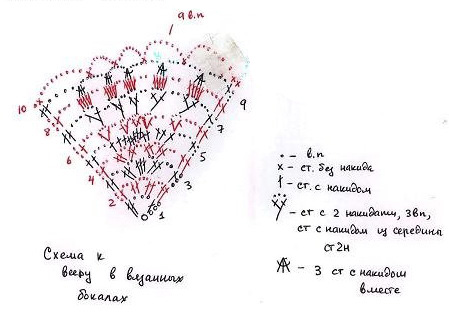 9 в.п
10
8
6
4
2
1
3
5
7
9
• – в.п
х – ст. без накида
† – ст. с накидом
– ст с 2 накидами, 3вп,
ст с накидом из середины
ст2н
– 3 ст с накидом
вместе
Схема к
вееру в вязанных
бокалах